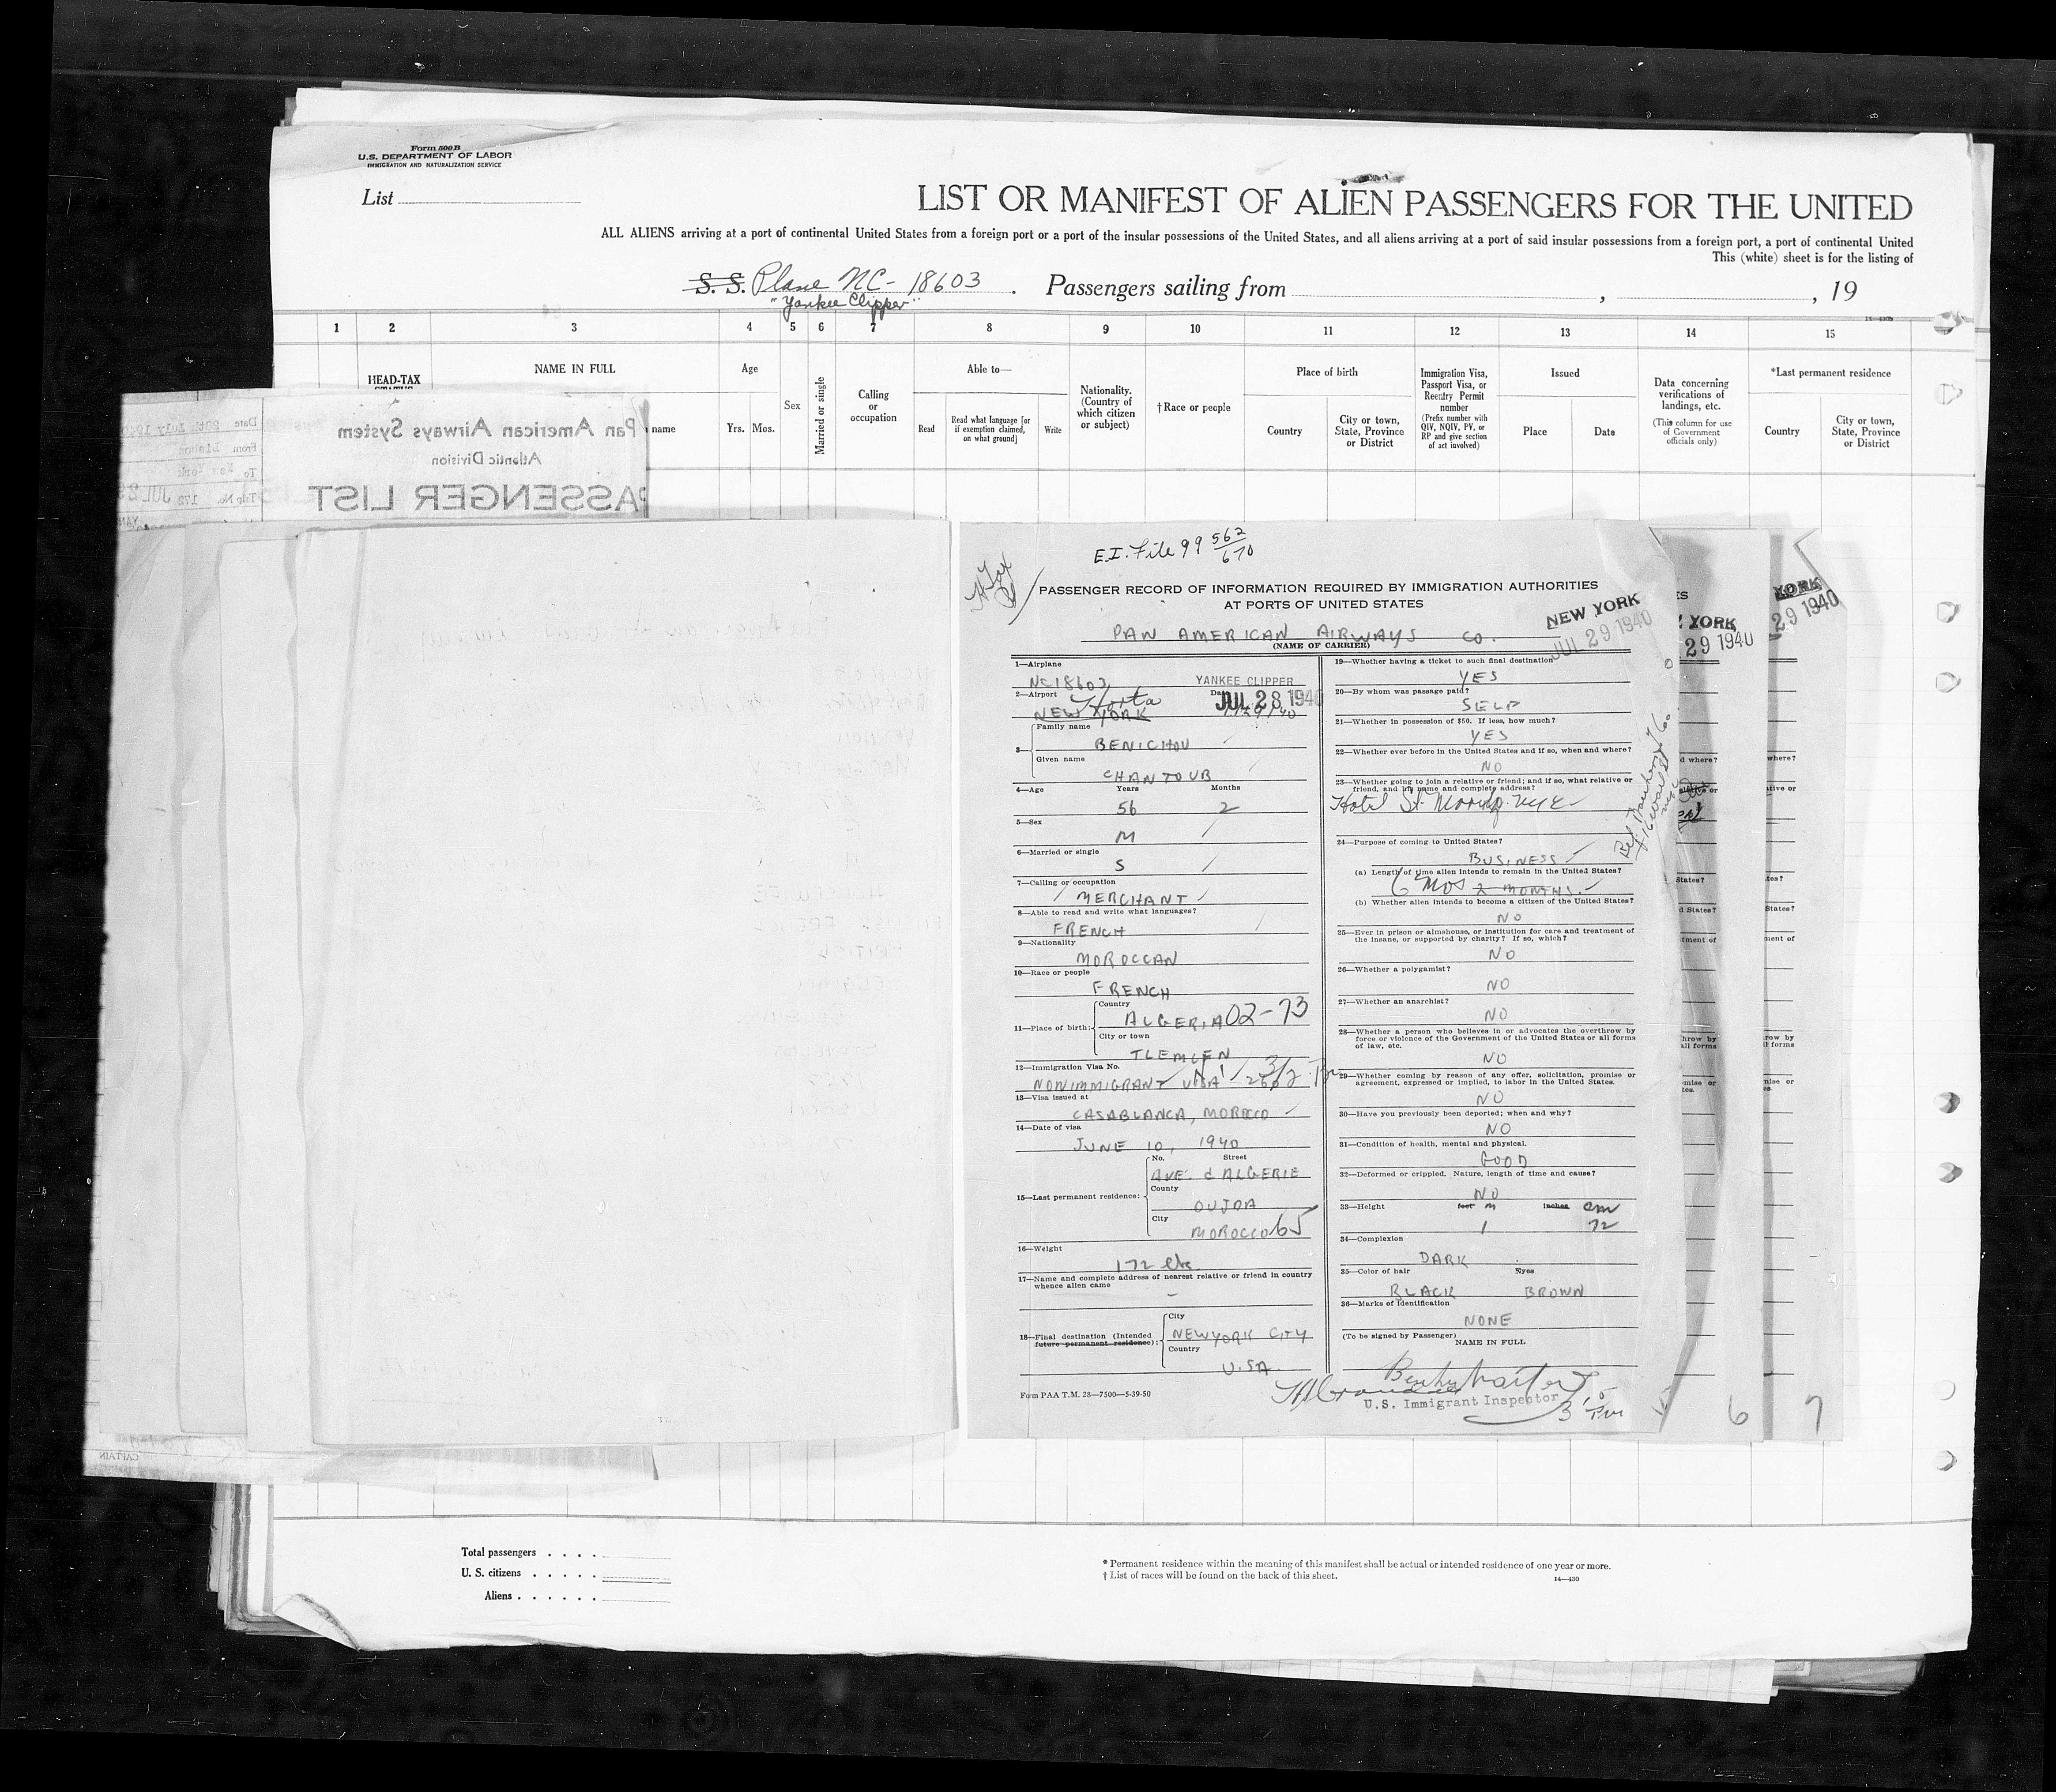 Form 500 B
U.S. DEPARTMENT OF LABOR
IMMIGRATION AND NATURALIZATION SERVICE
List
LIST OR MANIFEST OF ALIEN PASSENGERS FOR THE UNITED
ALL ALIENS arriving at a port of continental United States from a foreign port or a port of the insular possessions of the United States, and all aliens arriving at a port of said insular possessions from a foreign port, a port of continental United
This (white) sheet is for the listing of
S. S. Plane NC-18603 . Passengers sailing from , , 19
"Yankee Clipper"
1 2 3 4 5 6 7 8 9 10 11 12 13 14 15
HEAD-TAX
NAME IN FULL
name
Age
Yrs. Mos.
Sex
Married or single
Calling or occupation
Able to—
Read
Read what language [or if exemption claimed, on what ground]
Write
Nationality. (Country of which citizen or subject)
† Race or people
Place of birth
Country
City or town, State, Province or District
Immigration Visa, Passport Visa, or Reentry Permit number
(Prefix number with QIV, NQIV, PV, or RP and give section of act involved)
Issued
Place
Date
Data concerning verifications of landings, etc.
(This column for use of Government officials only)
*Last permanent residence
Country
City or town, State, Province or District
Pan American Airways System
Atlantic Division
PASSENGER LIST
Date 28th July 1940
From Lisbon
To New York
Trip No. 172
CAPTAIN
E.I. File 99 562/670
PASSENGER RECORD OF INFORMATION REQUIRED BY IMMIGRATION AUTHORITIES
AT PORTS OF UNITED STATES
NEW YORK
JUL 29 1940
PAN AMERICAN AIRWAYS CO.
(NAME OF CARRIER)
1—Airplane
NC18603 YANKEE CLIPPER
2—Airport
Horta JUL 28 1940
NEW YORK
3—
Family name
BENICHOU
Given name
CHANTOUB
4—Age Years Months
56 2
5—Sex
M
6—Married or single
S
7—Calling or occupation
MERCHANT
8—Able to read and write what languages?
FRENCH
9—Nationality
MOROCCAN
10—Race or people
FRENCH
11—Place of birth:
Country
ALGERIA 02-73
City or town
TLEMCEN
12—Immigration Visa No.
NONIMMIGRANT VISA
13—Visa issued at
CASABLANCA, MOROCCO
14—Date of visa
JUNE 10, 1940
15—Last permanent residence:
No. Street
AVE. d ALGERIE
County
OUJDA
City
MOROCCO 65
16—Weight
172
17—Name and complete address of nearest relative or friend in country whence alien came
-
18—Final destination (Intended future permanent residence):
City
NEW YORK CITY
Country
U.S.A.
Form PAA T.M. 28—7500—5-39-50
19—Whether having a ticket to such final destination
YES
20—By whom was passage paid?
SELF
21—Whether in possession of $50. If less, how much?
YES
22—Whether ever before in the United States and if so, when and where?
NO
23—Whether going to join a relative or friend; and if so, what relative or friend, and his name and complete address?
Hotel St. Moritz. NYC
24—Purpose of coming to United States?
BUSINESS
(a) Length of time alien intends to remain in the United States?
6 mos 2 MONTHS.
(b) Whether alien intends to become a citizen of the United States?
NO
25—Ever in prison or almshouse, or institution for care and treatment of the insane, or supported by charity? If so, which?
NO
26—Whether a polygamist?
NO
27—Whether an anarchist?
NO
28—Whether a person who believes in or advocates the overthrow by force or violence of the Government of the United States or all forms of law, etc.
NO
29—Whether coming by reason of any offer, solicitation, promise or agreement, expressed or implied, to labor in the United States.
NO
30—Have you previously been deported; when and why?
NO
31—Condition of health, mental and physical.
GOOD
32—Deformed or crippled. Nature, length of time and cause?
NO
33—Height feet m inches cm
1 72
34—Complexion
DARK
35—Color of hair Eyes
BLACK BROWN
36—Marks of Identification
NONE
(To be signed by Passenger)
NAME IN FULL
U.S. Immigrant Inspector
YORK
29 1940
YORK
29 1940
6
7
Total passengers . . . .
U. S. citizens . . . . .
Aliens . . . . . .
* Permanent residence within the meaning of this manifest shall be actual or intended residence of one year or more.
† List of races will be found on the back of this sheet.
14—430